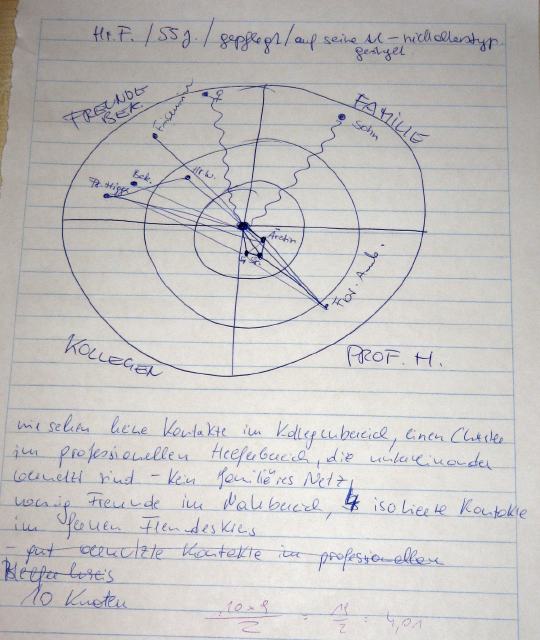 Hr. F. / 55 J. / gepflegt / auf seine
FREUNDE
BEK.
FAMILIE
Sohn
Bek.
Hr. W.
Ärztin
KOLLEGEN
PROF. H.
wir sehen keine Kontakte im Kollegenbereich, einen Cluster
im professionellen Helferbereich, die untereinander
vernetzt sind - kein familiäres Netz
wenig Freunde im Nahbereich, 4 isolierte Kontakte
im fernen Freundeskreis
- gut vernetzte Kontakte im professionellen
Helferkreis
10 Knoten
10 x 9
2